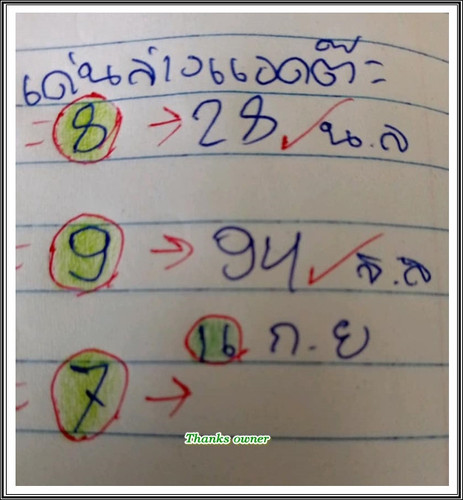 เด่นล่างแอดต๊ะ
= 8 → 28 ✓ น.ล
= 9 → 94 ✓ ส.ล
16 ก.ย
= 7 →
Thanks owner